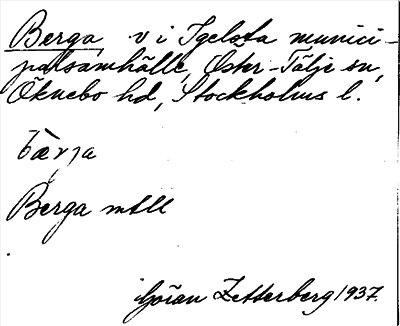 Berga v i Igelsta munici-
palsamhälle, Öster-Tälje sn,
Öknebo hd, Stockholms l.
bærja
Berga mtll
Göran Zetterberg 1937.